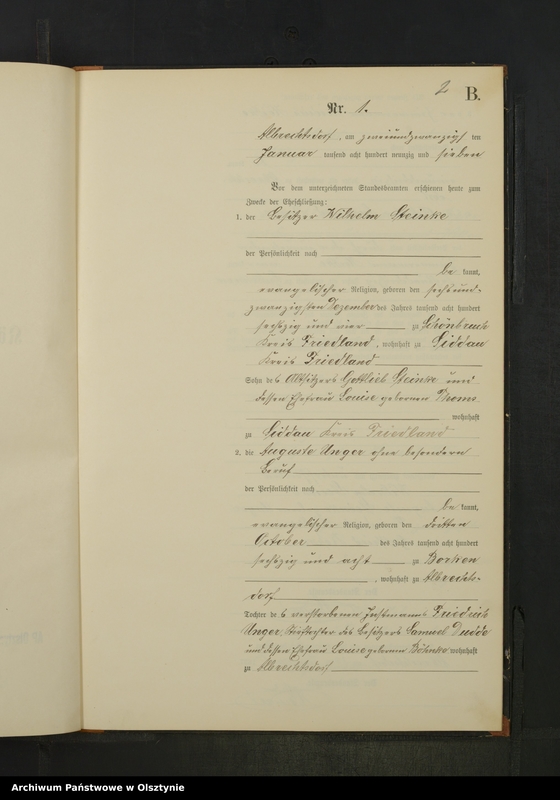 2
B.
Nr. 1.
Albrechtsdorf, am zweiundzwanzigsten
Januar tausend acht hundert neunzig und sieben
Vor dem unterzeichneten Standesbeamten erschienen heute zum
Zwecke der Eheschließung:
1. der Besitzer Wilhelm Steinke
der Persönlichkeit nach
be kannt,
evangelischer Religion, geboren den sechsund-
zwanzigsten Dezember des Jahres tausend acht hundert
sechszig und vier zu Schönbruch
Kreis Friedland, wohnhaft zu Liddau
Kreis Friedland
Sohn des Altsitzers Gottlieb Steinke und
dessen Ehefrau Louise geborenen Thoms
wohnhaft
zu Liddau Kreis Friedland
2. die Auguste Unger ohne besondern
Beruf
der Persönlichkeit nach
be kannt,
evangelischer Religion, geboren den dritten
October des Jahres tausend acht hundert
sechszig und acht zu Borken
, wohnhaft zu Albrechts-
dorf
Tochter des verstorbenen Instmanns Friedrich
Unger, Stieftochter des Besitzers Samuel
und dessen Ehefrau Louise geborenen Böhnke wohnhaft
zu Albrechtsdorf
Archiwum Państwowe w Olsztynie